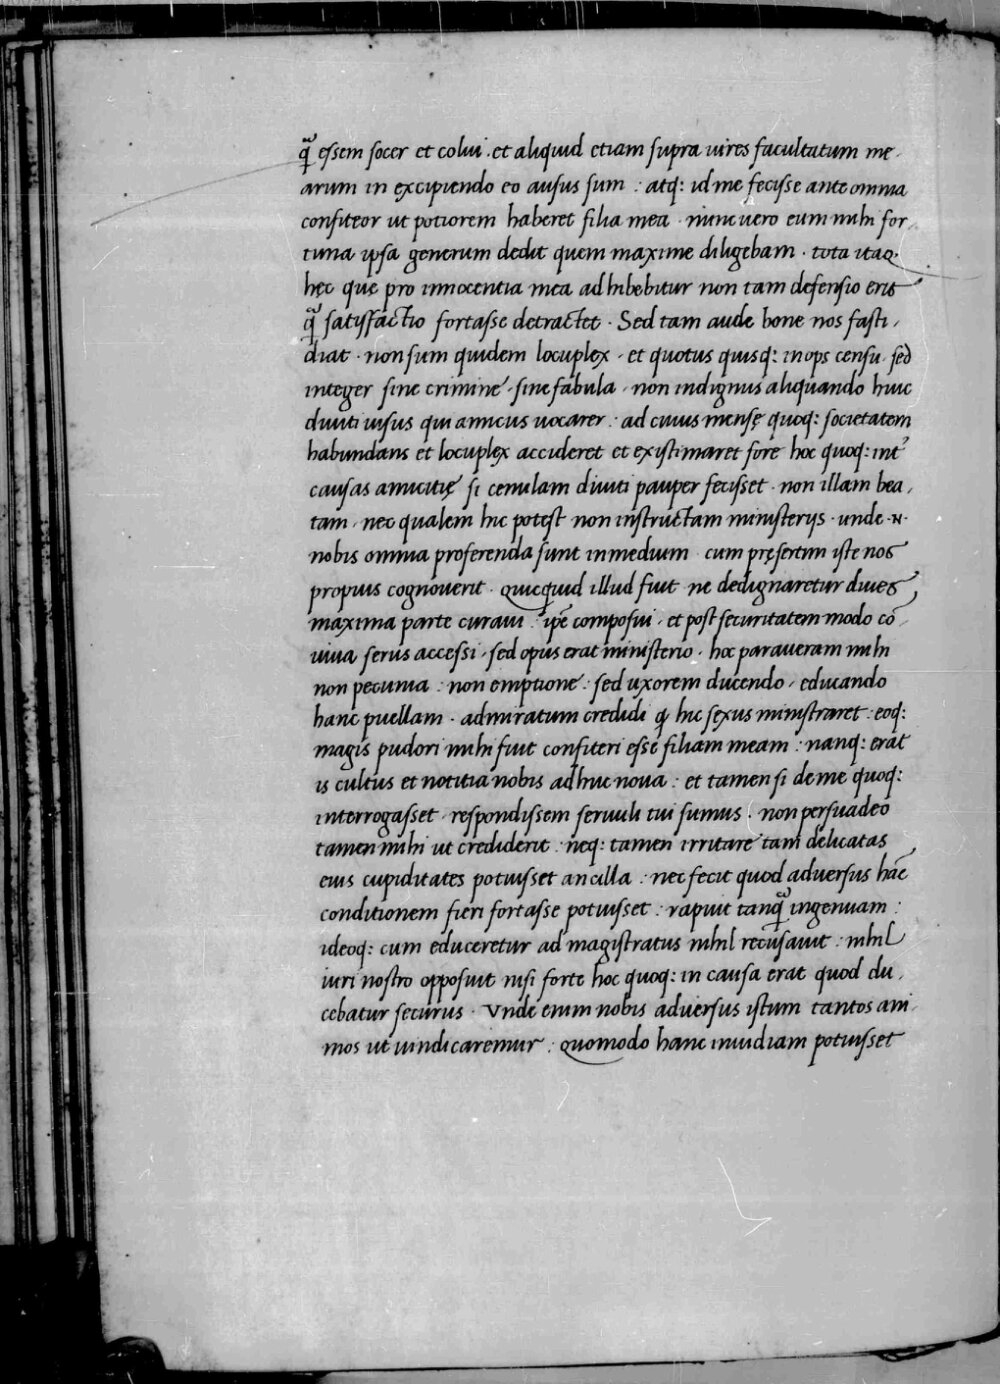 q̃ essem socer et colui . et aliquid etiam supra uires facultatum me,
arum in excipiendo eo ausus sum : atq: id me fecisse ante omnia
confiteor ut potiorem haberet filia mea . nunc uero eum mihi for,
tuna ipsa generum dedit quem maxime diligebam . tota itaq.
hęc quę pro innocentia mea adhibebitur non tam defensio erit
q̃ satisfactio fortasse detractet . Sed tam aude bone nos fasti,
diat . non sum quidem locuplex , et quotus quisq: inops censu . sed
integer sine crimine . sine fabula , non indignus aliquando huic
diuiti uisus qui amicus uocarer . ad cuius mensę quoq: societatem
habundans et locuplex accideret et existimaret fore hoc quoq: int'
causas amicitię si cenulam diuiti pauper fecisset . non illam bea,
tam , nec qualem hic potest non instructam ministerijs . unde .N.
nobis omnia proferenda sunt in medium . cum pręsertim iste nos
propius cognouerit . quicquid illud fuit ne dedignaretur diues,
maxima parte curaui . ipē composui , et post securitatem modo cō,
uiua serius accessi , sed opus erat ministerio . hoc paraueram mihi
non pecunia : non emptione : sed uxorem ducendo , educando
hanc puellam . admiratum credidi q̃ hic sexus ministraret : eoq:
magis pudori mihi fuit confiteri esse filiam meam : nanq: erat
is cultus et notitia nobis adhuc noua : et tamen si de me quoq:
interrogasset . respondissem seruuli tui sumus . non persuadeo
tamen mihi ut crediderit . neq: tamen irritare tam delicatas
eius cupiditates potuisset ancilla : nec fecit quod aduersus hāc
conditionem fieri fortasse potuisset : rapuit tanq̃ ingenuam :
ideoq: cum educeretur ad magistratus nihil recusauit : nihil
iuri nostro opposuit nisi forte hoc quoq: in causa erat quod du,
cebatur securus . Vnde enim nobis aduersus istum tantos ani,
mos ut uindicaremur : quomodo hanc inuidiam potuisset